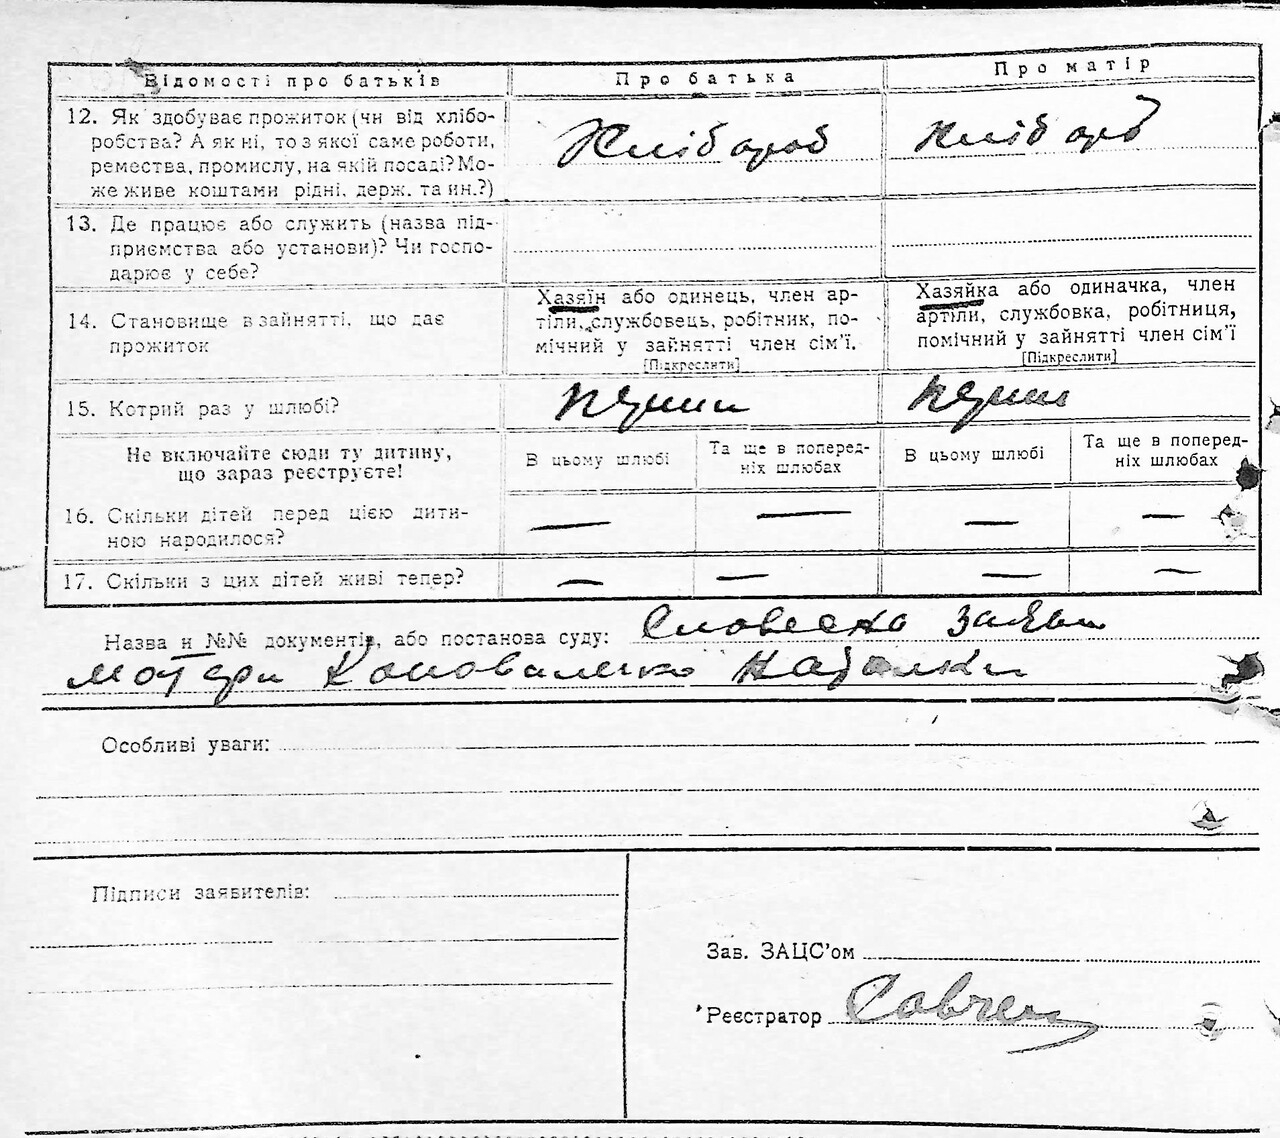 Відомості про батьків
Про батька
Про матір
12. Як здобуває прожиток (чи від хлібо-
робства? А як ні, то з якої саме роботи,
ремества, промислу, на якій посаді? Мо-
же живе коштами рідні, держ. та ин.?)
Хлібороб
Хлібороб
13. Де працює або служить (назва під-
приємства або установи)? Чи госпо-
дарює у себе?
14. Становище в зайнятті, що дає
прожиток
Хазяїн або одинець, член ар-
тіли, службовець, робітник, по-
мічний у зайнятті член сім'ї.
[Підкреслити]
Хазяйка або одиначка, член
артіли, службовка, робітниця,
помічний у зайнятті член сім'ї
[Підкреслити]
15. Котрий раз у шлюбі?
Не включайте сюди ту дитину,
що зараз реєструєте!
В цьому шлюбі
Та ще в поперед-
ніх шлюбах
В цьому шлюбі
Та ще в поперед-
ніх шлюбах
16. Скільки дітей перед цією дити-
ною народилося?
— — — —
17. Скільки з цих дітей живі тепер?
— — — —
Назва й №№ документів, або постанова суду: Словесна заява
матери Коноваленко Наталки
Особливі уваги:
Підписи заявителів:
Зав. ЗАЦС'ом
Реєстратор